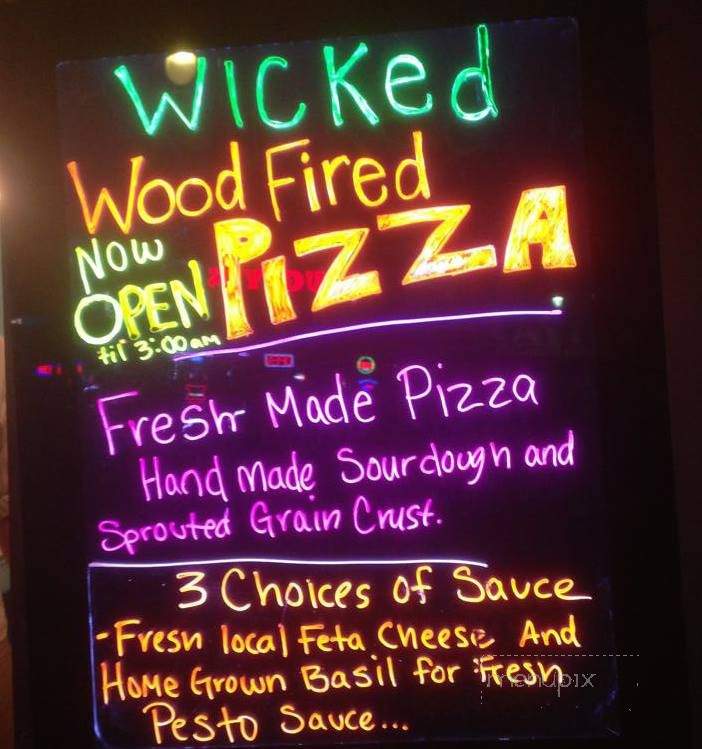 Wicked
Wood Fired
Now
OPEN
PIZZA
til 3:00am
Fresh Made Pizza
Hand made Sourdough and
Sprouted Grain Crust.
3 Choices of Sauce
-Fresh local Feta Cheese And
Home Grown Basil for Fresh
Pesto Sauce...
menupix